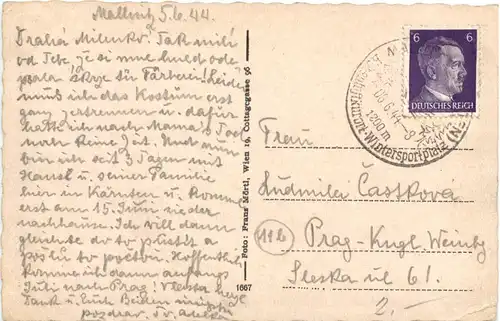 Mallnitz 5.6.44.
Drahá Milenko! Tak milé
od Tebe, je si mne hned
psala skrze tu Färberei. Leider
muß ich das Kostüm erst
ganz zertrennen u. dafür
hatte ich nach Mama's Tod
noch keine Zeit. Und nun
bin ich seit 3 Tagen mit
Hansl u. seiner Familie
hier in Kärnten u. komme
erst am 15. Juni wieder
nachhause. Ich will dann
gleich to pustit a
poslu to poštou. Hoffentlich
komme ich dann anfangs
Juli nach Prag!
Dank u. Euch Beiden
pozdrav. Tv.
Foto: Franz Mörtl, Wien 19, Cottagegasse 96
1667
6 6
DEUTSCHES REICH
6.44-8
1200 m
Höhenluftkurort-Wintersportplatz
Frau
Ludmila Častková
11b
Prag-Kngl. Weinbg
Sleska ul 61.
2.-